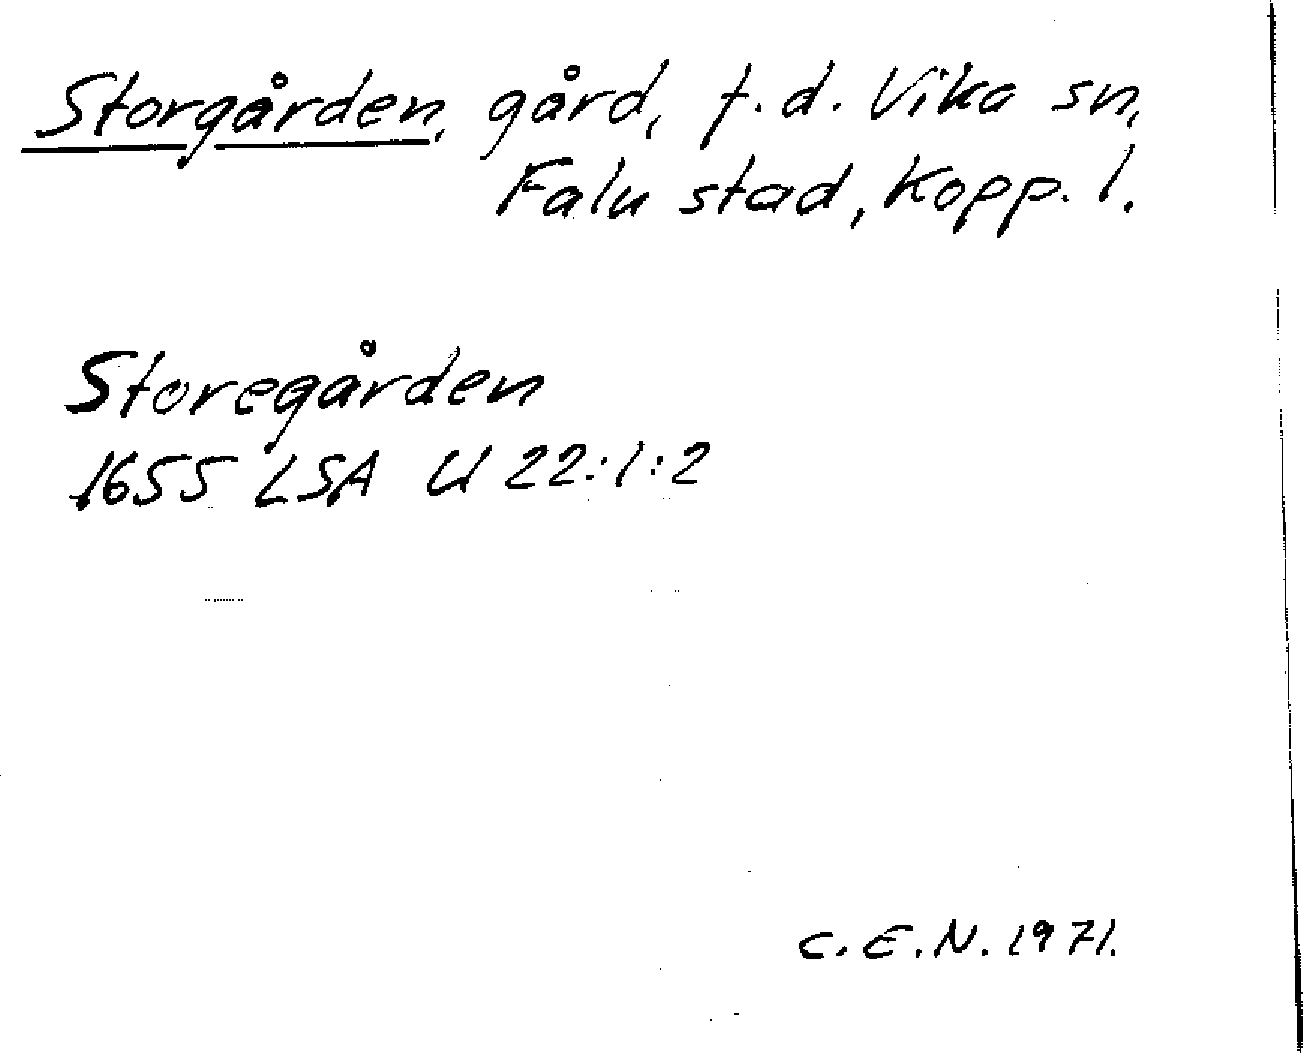 Storgården, gård, f.d. Vika sn,
Falu stad, Kopp. l.
Storegården
1655 LSA U 22:1:2
C.E.N. 1971.